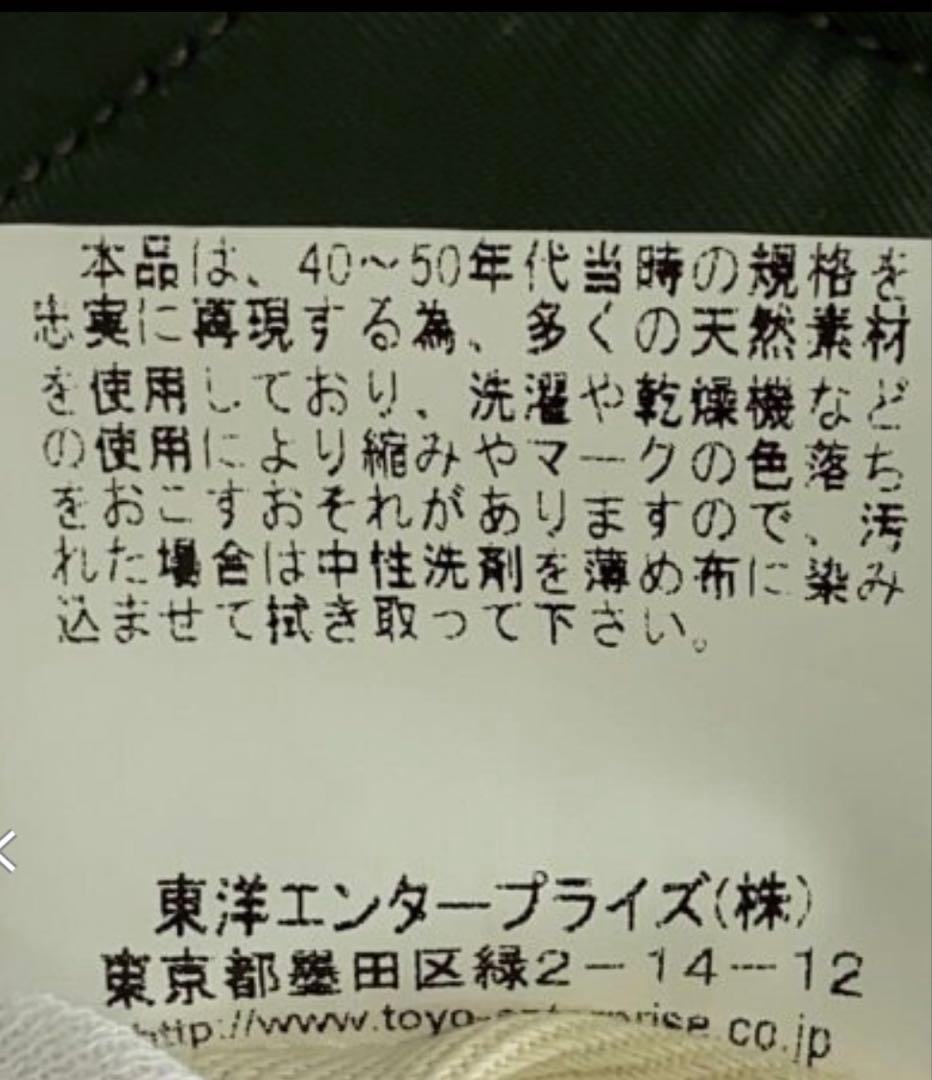 本品は、40～50年代当時の規格を
忠実に再現する為、多くの天然素材
を使用しており、洗濯や乾燥機など
の使用により縮みやマークの色落ち
をおこすおそれがありますので、汚
れた場合は中性洗剤を薄め布に染み
込ませて拭き取って下さい。
東洋エンタープライズ(株)
東京都墨田区緑2－14－12
http://www.toyo-enterprise.co.jp